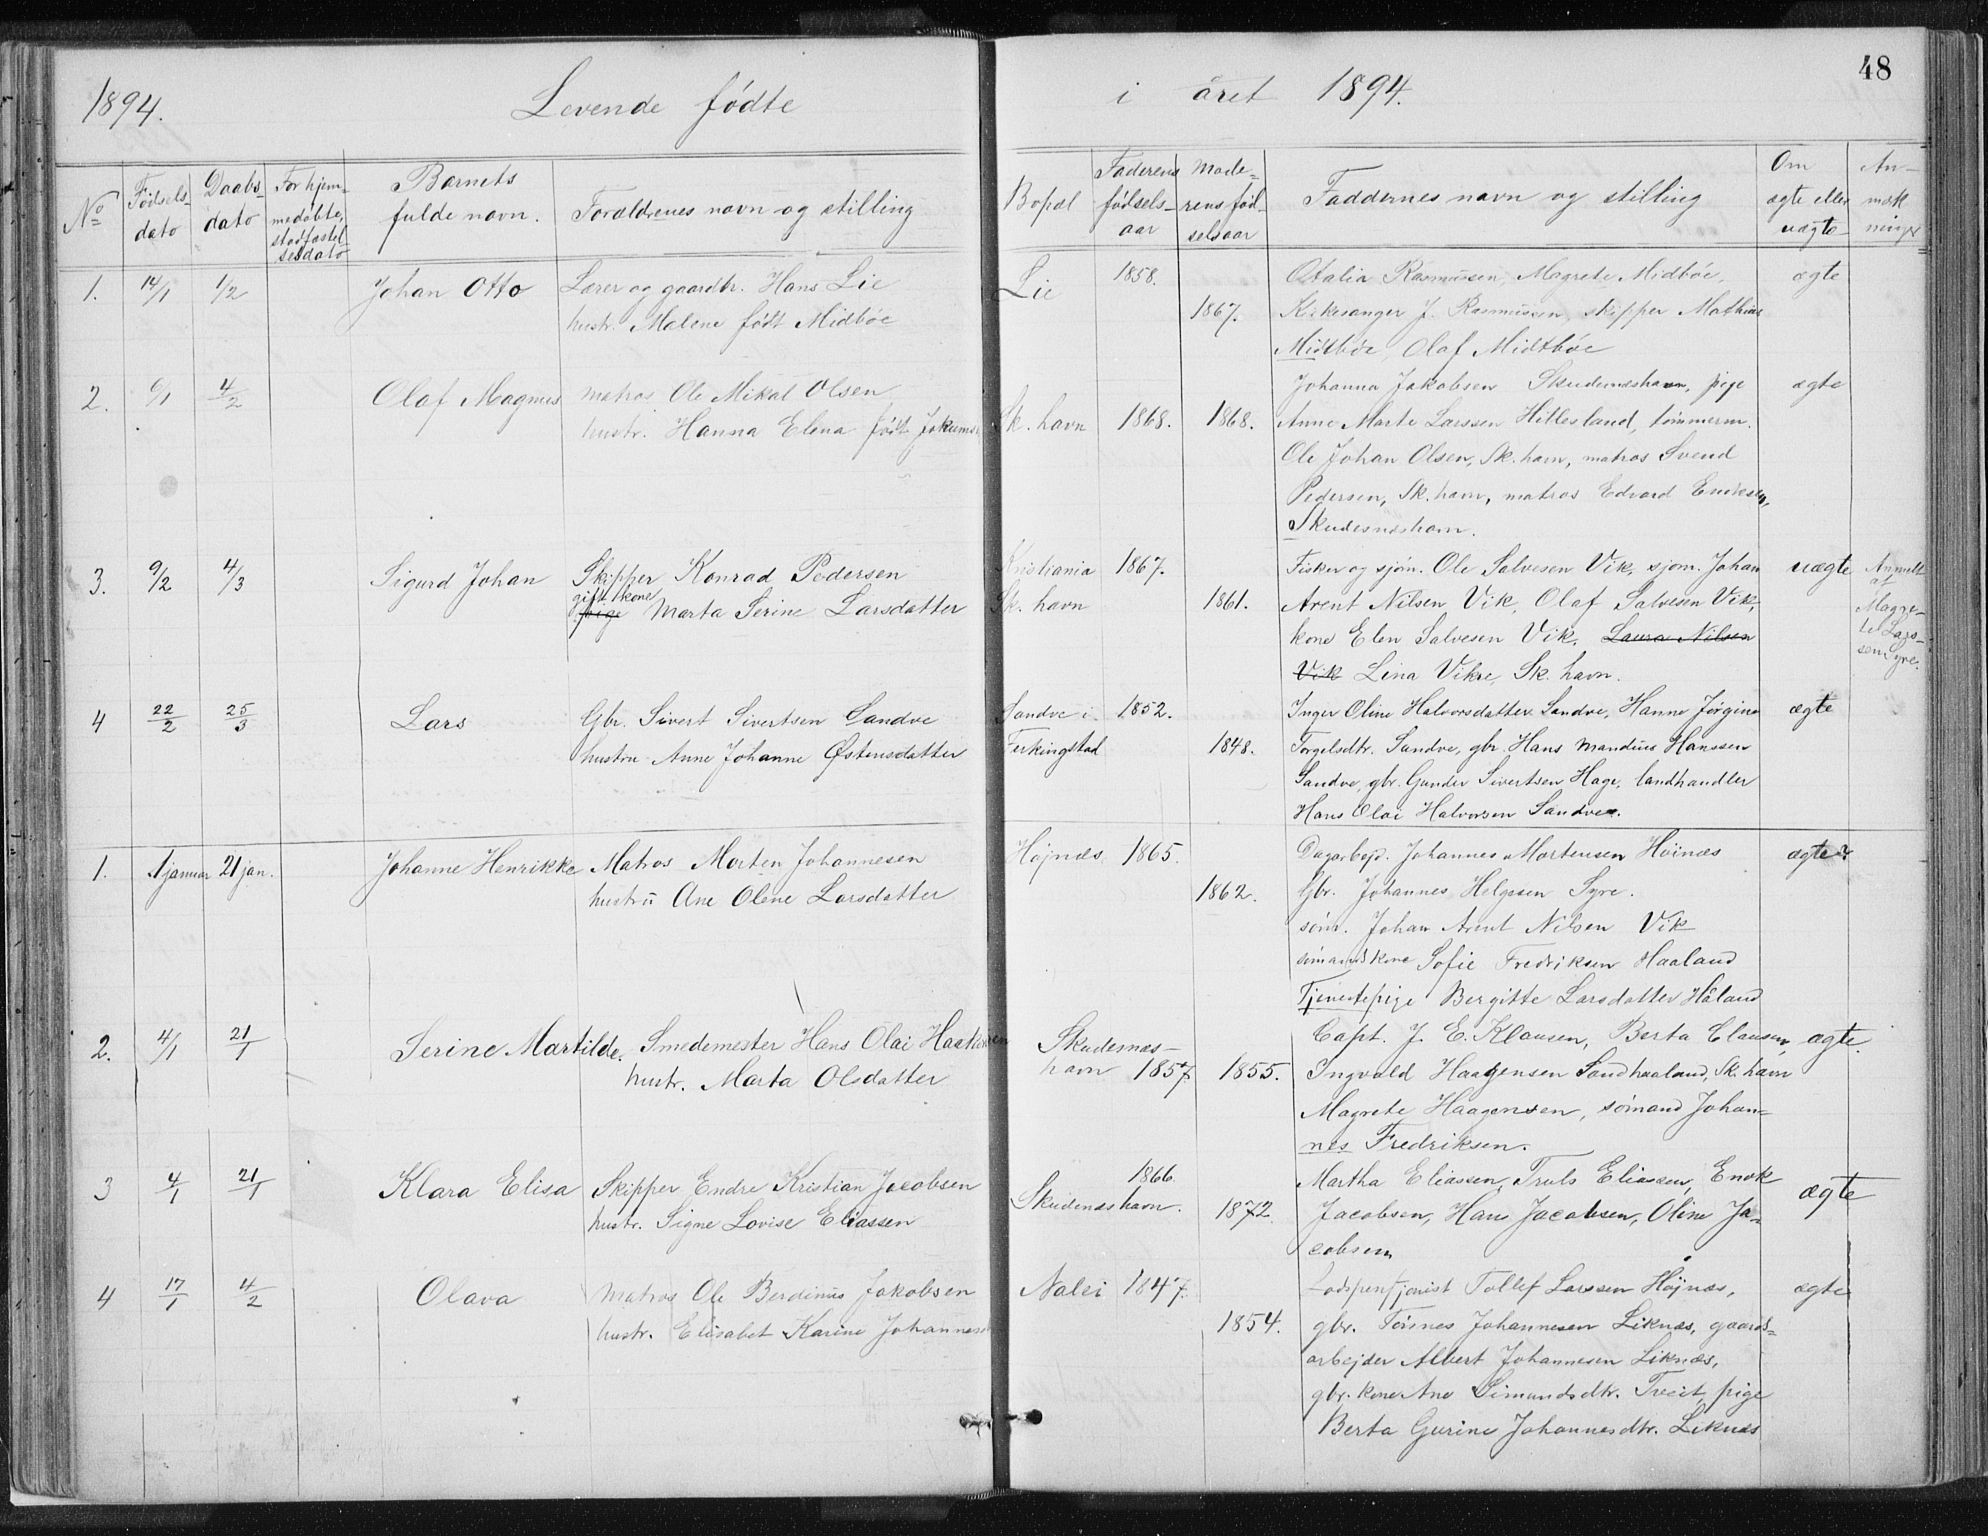 48
1894. Levende fødte i året 1894.
No Fødselsdato Daabsdato For hjemmedøbte, stadfæstelsesdato Barnets fulde navn. Forældrenes navn og stilling Bopæl Faderens fødselsaar Moderens fødselsaar Faddernes navn og stilling Om ægte eller uægte Anmærkninger
1. 14/1 1/2 Johan Otto Lærer og gaardbr. Hans Lie Lie 1858. Otalia Rasmussen, Magrete Midbøe, ægte
hustr. Malene født Midbøe 1867. Kirkesanger J. Rasmussen, skipper Mathias
Midtbøe, Olaf Midtbøe
2. 6/1 4/2 Olaf Magnus matros Ole Mikal Olsen Johanna Jakobsen Skudesneshavn, pige ægte
hustr. Hanna Elena født Jokums Sk. havn 1868. 1868. Anne Marte Larssen Hillesland, tømmerm.
Ole Johan Olsen, Sk. havn, matros Svend
Pedersen, Sk. havn, matros Edvard Eriksen,
Skudesneshavn.
3. 9/2 4/3 Sigurd Johan Skipper Konrad Pedersen Kristiania 1867. Fisker og sjøm. Ole Salvesen Vik, sjøm. Johan uægte Anmeldt
gift kone
pige Marta Serine Larsdatter Sk. havn 1861. Arent Nilsen Vik, Olaf Salvesen Vik, af Magre-
kone Elen Salvesen Vik. Laura Nilsen te Lars-
Vik Lina Vikre, Sk. havn. sen Syre.
4 22/2 25/3 Lars Gbr. Sivert Sivertsen Sandve Sandve i 1852. Inger Oline Halvorsdatter Sandve, Hanne Jørgine ægte
hustru Anne Johanne Østensdatter Ferkingstad 1848. Torgelsdtr. Sandve, gbr. Hans Mandius Hanssen
Sandve, gbr. Gunder Sivertsen Hage, landhandler
Hans Olai Halvorsen Sandve.
1. 1 januar 21 jan. Johanne Henrikke Matros Morten Johannesen Højnæs 1865. Dagarbejd. Johannes Mortensen Høinæs ægte
hustrü Ane Olene Larsdatter 1862. Gbr. Johannes Helgesen Syre.
søm. Johan Arent Nilsen Vik
sømandskone Sofie Fredriksen Haaland
Tjenestepige Bergitte Larsdatter Håland
2. 4/1 21/1 Serine Martilde. Smedemester Hans Olai Haakensen Skudesnæs- Capt. J. E. Klausen, Berta Clausen, ægte.
hustr. Marta Olsdatter havn 1857 1855. Ingvald Haagensen Sandhaaland, Sk. havn
Magrete Haagensen, sømand Johan-
nes Fredriksen.
3 4/1 21/1 Klara Elisa Skipper Endre Kristian Jacobsen Skudesnæshavn. 1866. Martha Eliassen, Truls Eliassen, Enok ægte
hustr. Signe Lovise Eliassen 1872. Jacobsen, Hans Jacobsen, Oline Ja-
cobsen
4 17/1 4/2 Olava matros Ole Berdinus Jakobsen Nalei 1847. Lodspensjonist Tollef Larssen Højnæs, ægte
hustr. Elisabet Karine Johannesd 1854. gbr. Tønnes Johannesen Liknæs, gaards-
arbejder Albert Johannesen Liknæs,
gbr. kone Ane Simundsdtr. Tveit, pige
Berta Gurine Johannesdtr. Liknæs